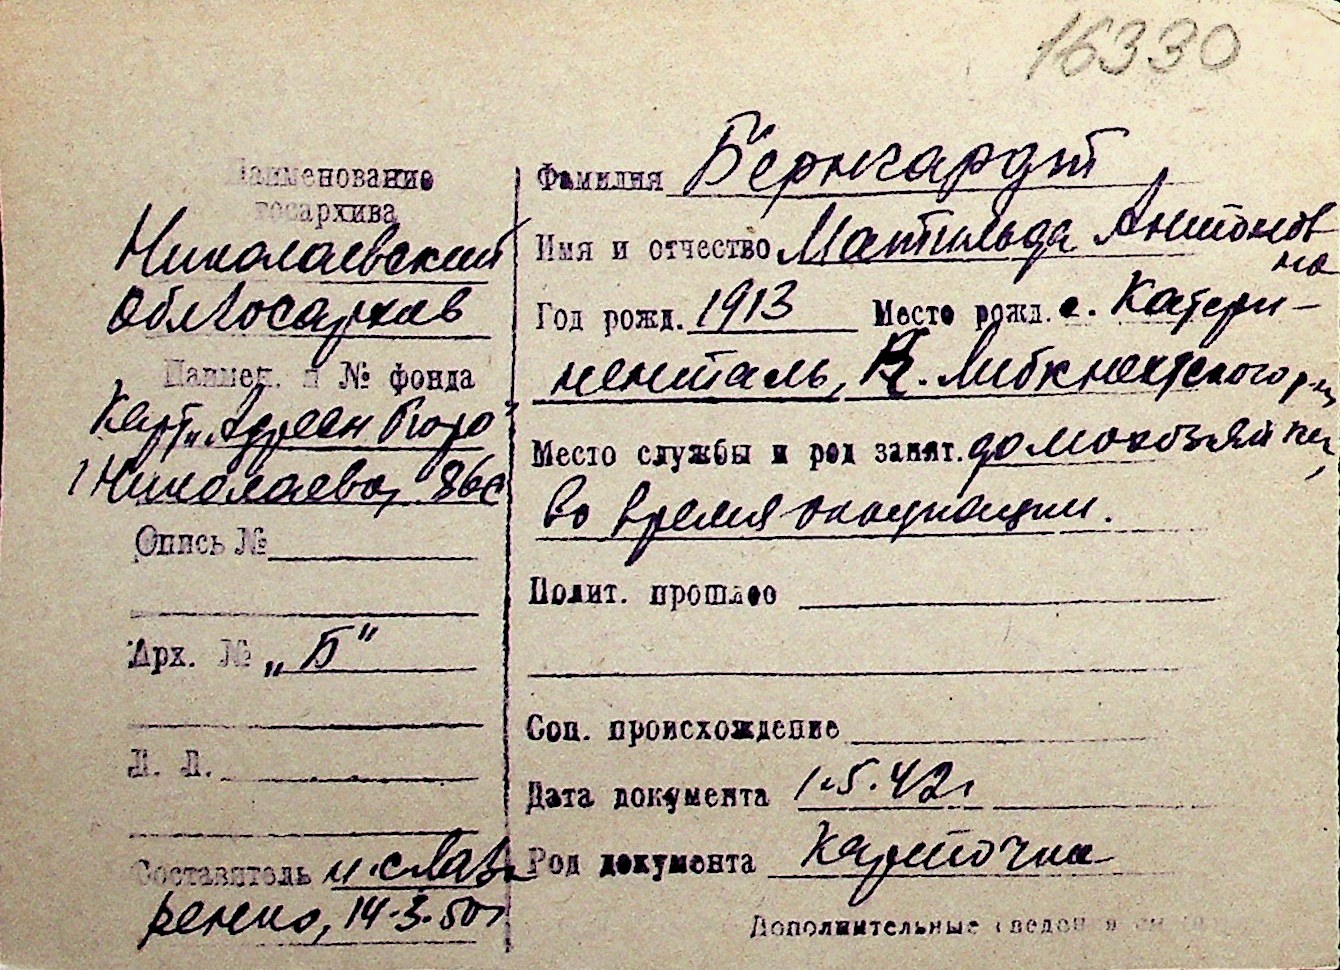 16330
Наименование
госархива
Николаевский
облгосархив
Наимен. и № фонда
Карт. „Адресн бюро"
г Николаева, 86с
Опись №
Арх. № „Б"
Л. Л.
Составитель
ренко, 14.3.50г
Фамилия Бернгардт
Имя и отчество Матильда Антонов
на
Год рожд. 1913 Место рожд. с. Катери-
ненталь, К. Либкнехтского р-на
Место службы и род занят. домохозяйка,
во время оккупации.
Полит. прошлое
Соц. происхождение
Дата документа 1.5.42г
Род документа карточка
Дополнительные сведения